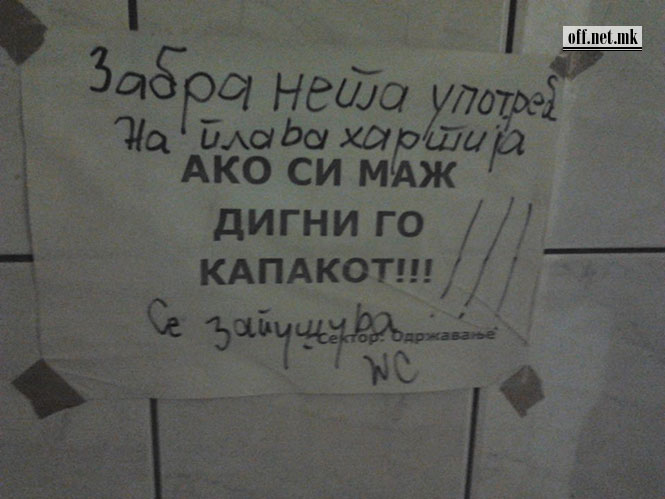 off.net.mk
Забра нета употреб
На плава хартија
АКО СИ МАЖ
ДИГНИ ГО
КАПАКОТ!!! !!!
Се запушува
Сектор: Одржавање
WC